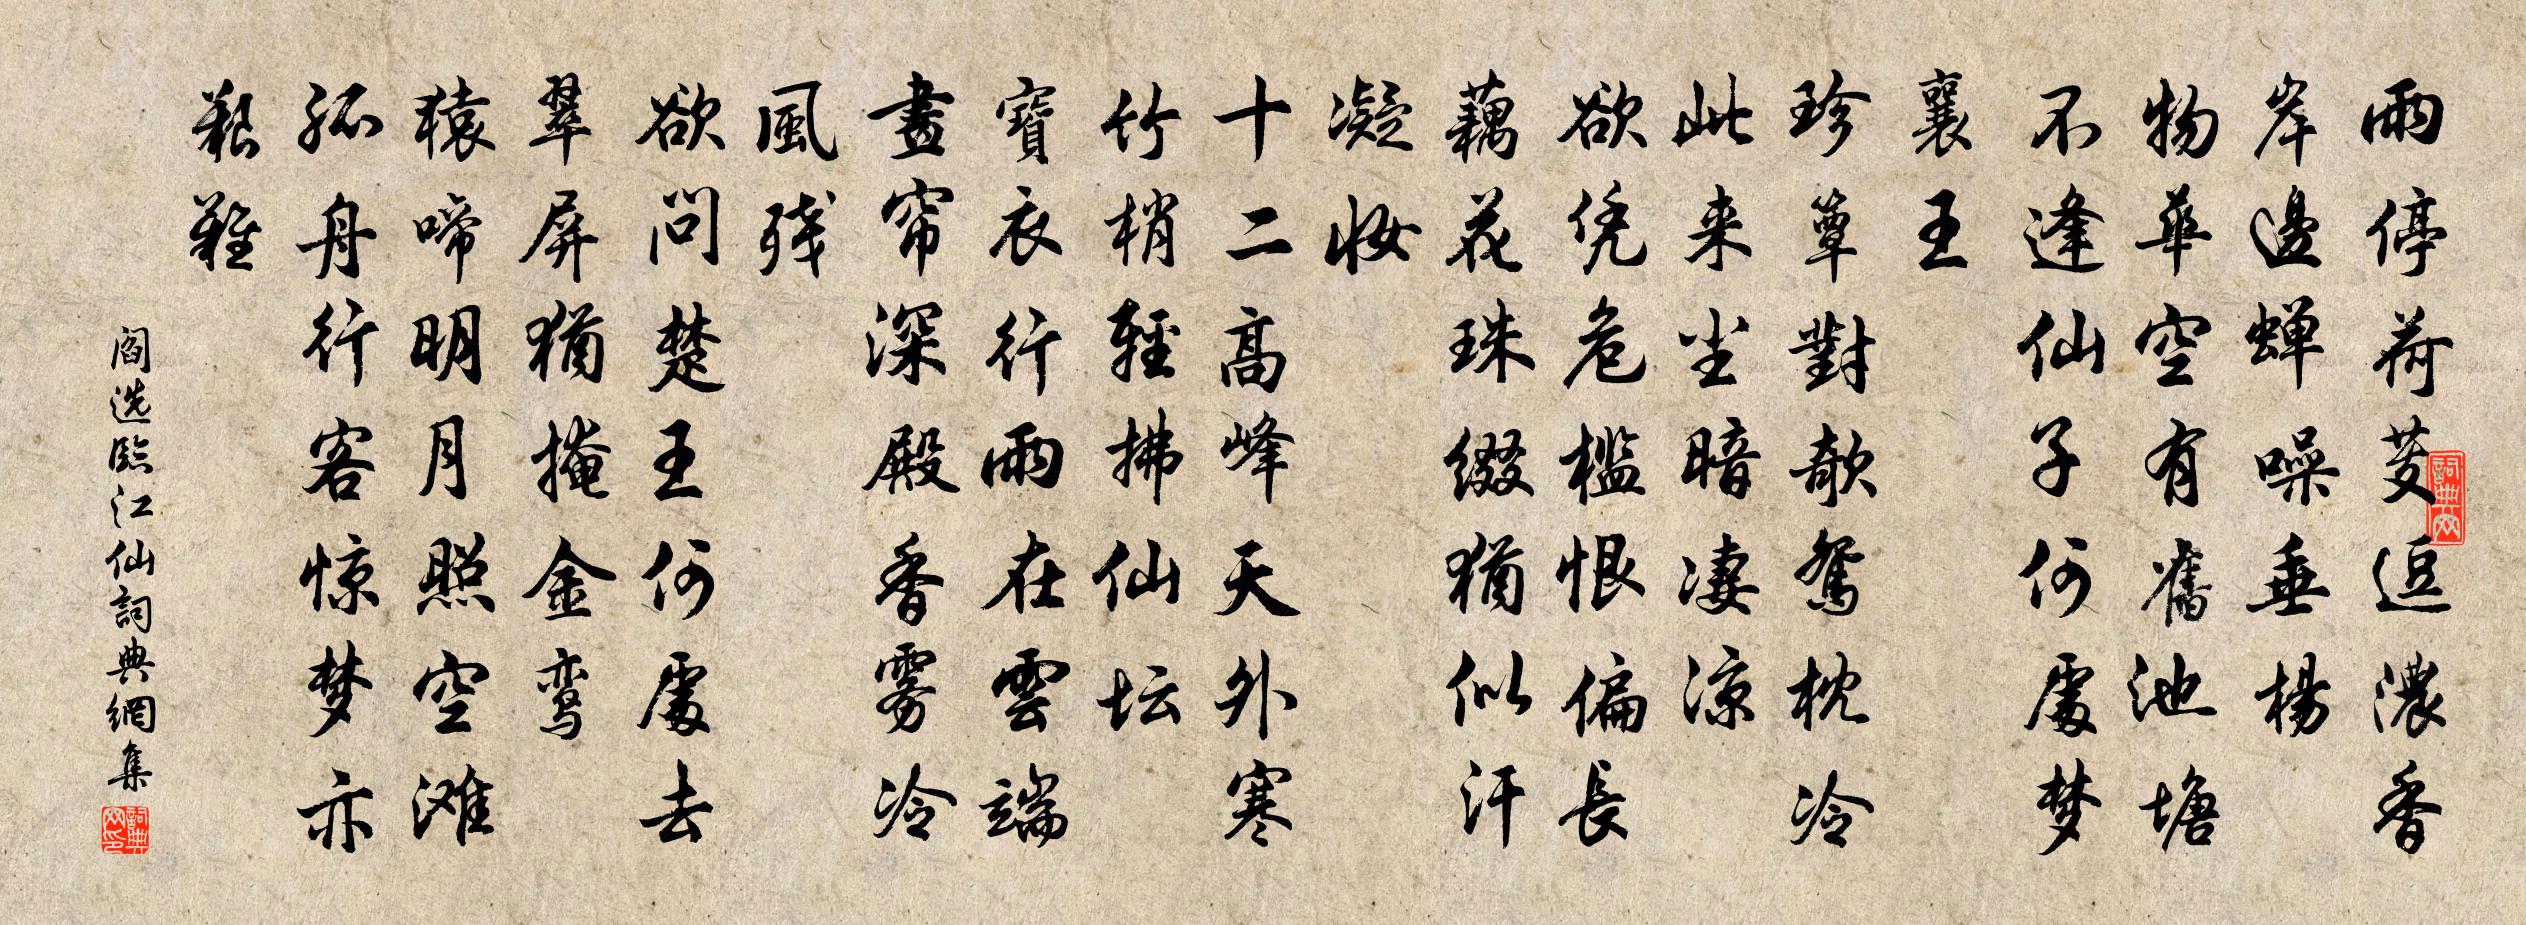 雨停荷芰逗濃香
岸邊蟬噪垂楊
物華空有舊池塘
不逢仙子何處夢
襄王
珍簟對欹鴛枕冷
此来尘暗凄涼
欲凭危檻恨偏長
藕花珠缀猶似汗
凝妆
十二高峰天外寒
竹梢輕拂仙坛
寶衣行雨在雲端
畫帘深殿香雾冷
風残
欲问楚王何處去
翠屏猶掩金鸾
猿啼明月照空滩
孤舟行客惊梦亦
艱難
阎选臨江仙詞典網集
詞典网
詞典网印